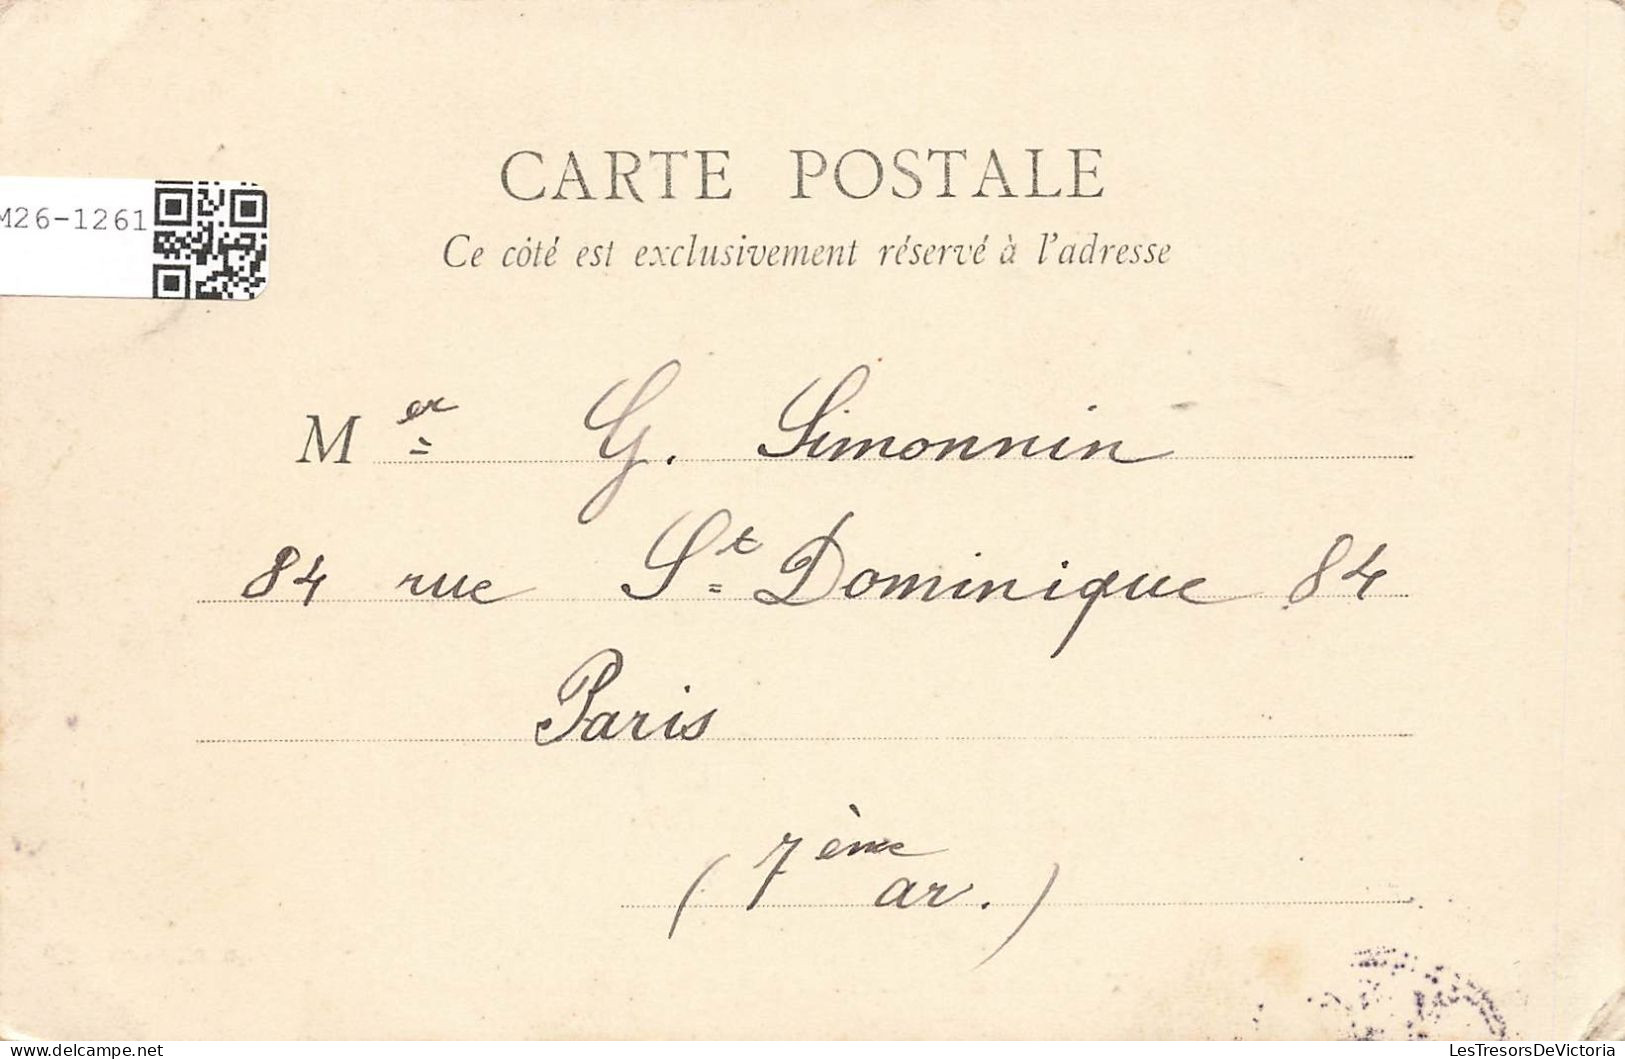 CARTE POSTALE
M26-1261
Ce côté est exclusivement réservé à l'adresse
Mer G. Simonnin
84 rue St Dominique 84
Paris
(7ème ar.)
delcampe.net
LesTresorsDeVictoria